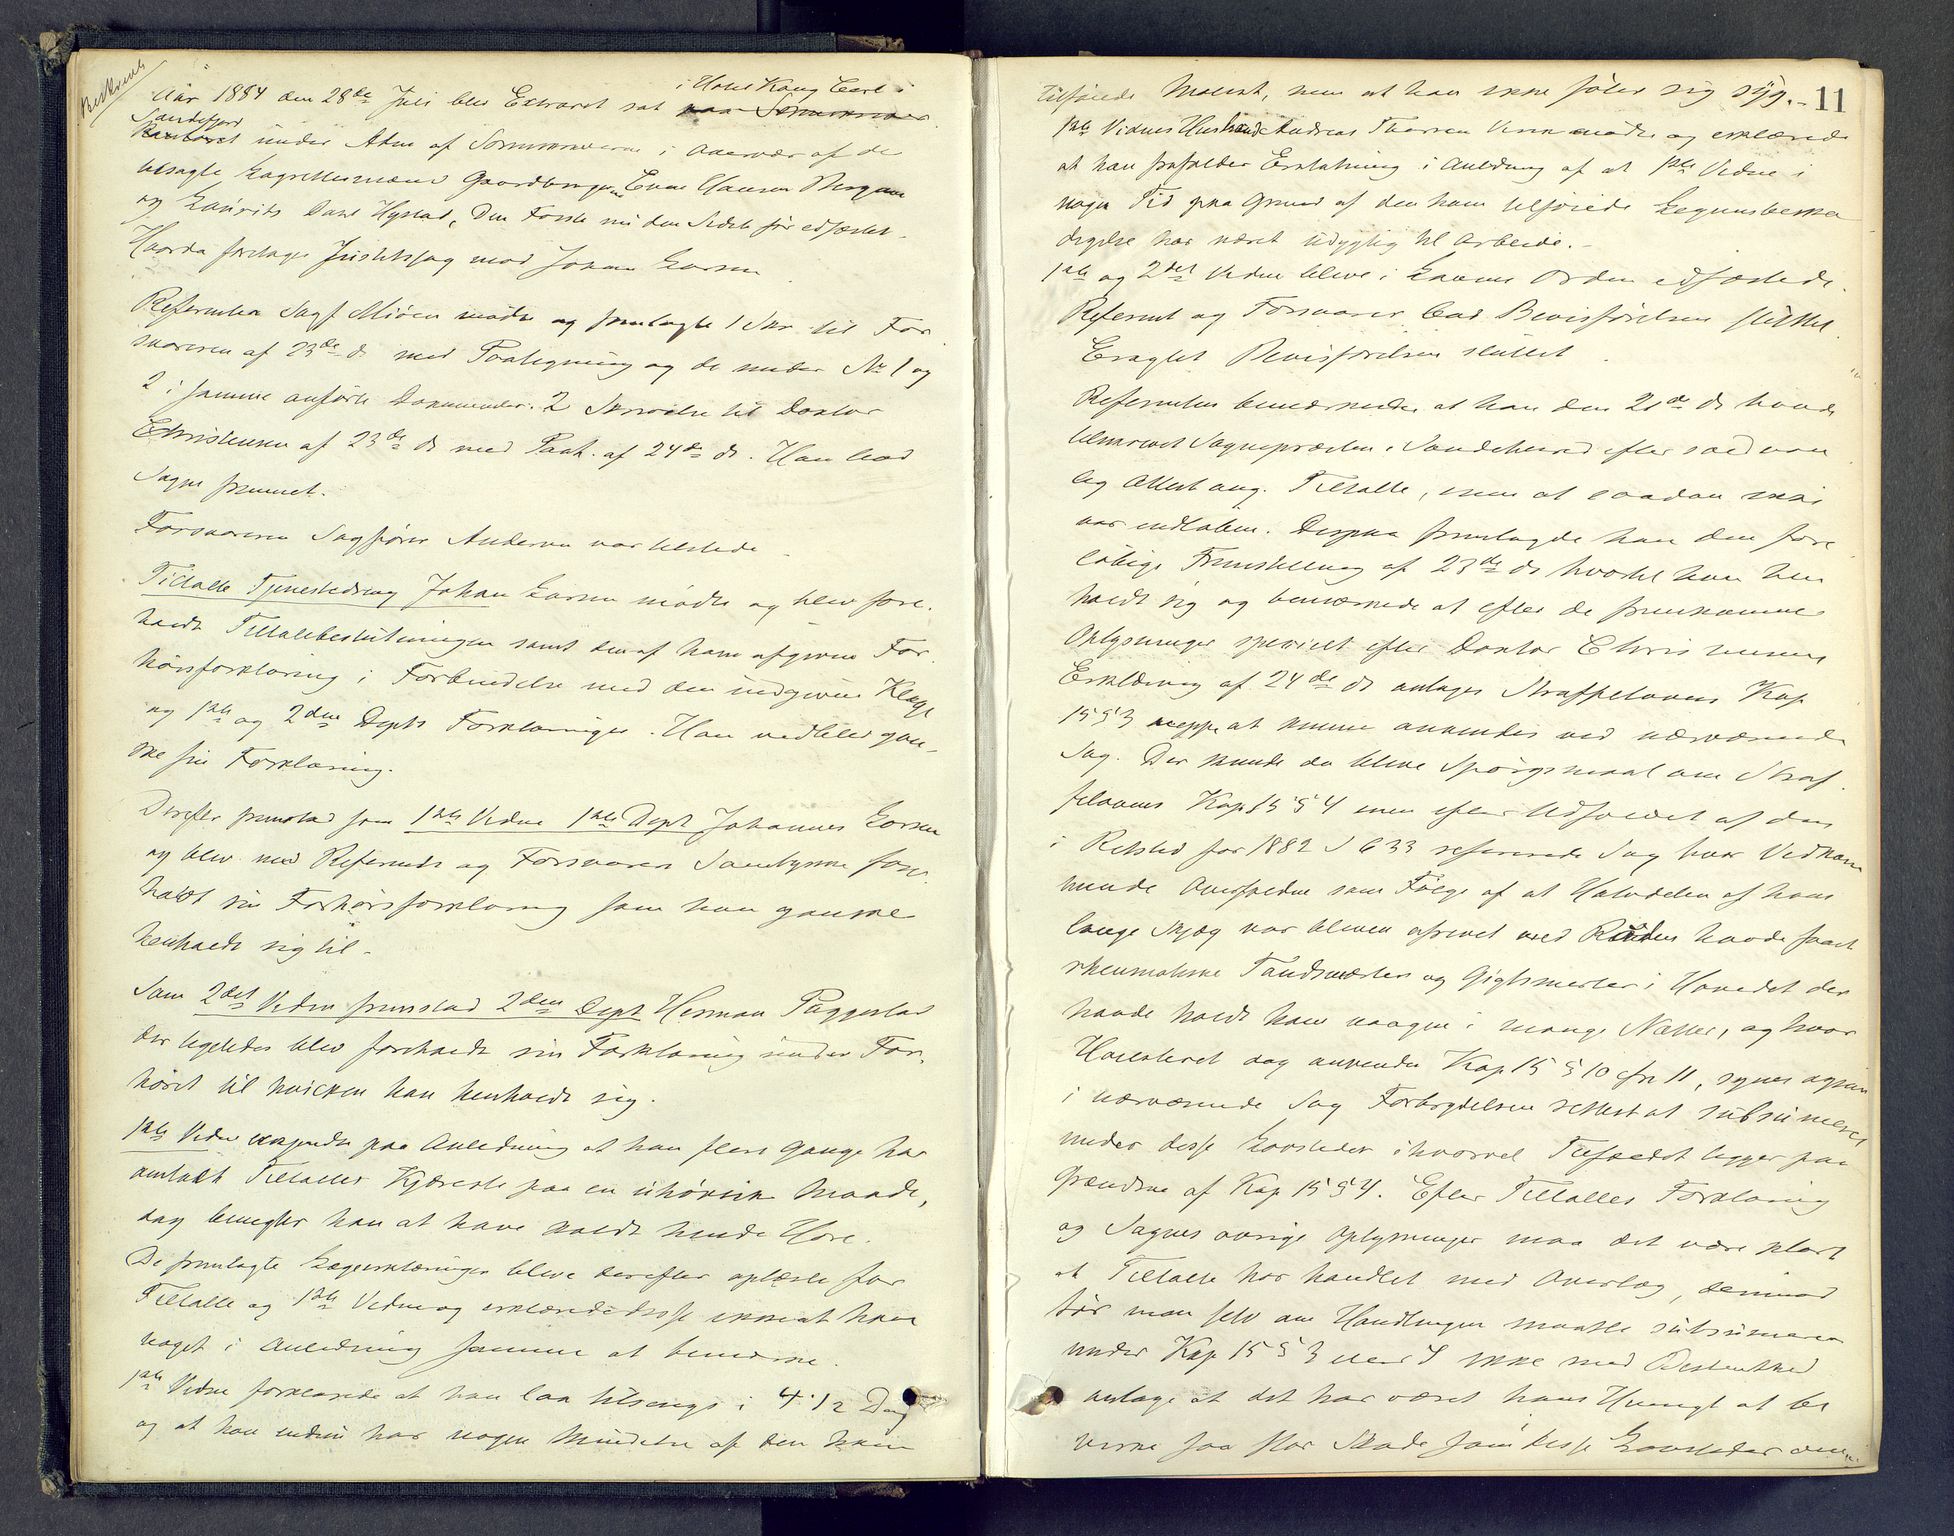 Beskrevet
Aar 1884 den 28de Juli blev Extraret sat i Hotel Kong Carl i
Sandefjord under Adm af Sorenskriveren i Overvær af de
besagte Lagrettesmænd Gaardbruger Even Hansen Bergan
og Laurits Dahl Hystad, Den Første nu den Sidste før edfæstet.
Hvorda foretages Justitssag mod Johan Larsen
Referenten Sagf Miøen mødte og fremlagte 1 Skr. til For
svareren af 23de ds med Paategning og de under No 1 og
2 i samme anførte Dokumenter. 2 Skrivelse til Doktor
Christensen af 23de ds med Paat. af 24de ds. Han bad
Sagen fremmet.
Forsvareren Sagfører Andersen var tilstede.
Tiltalte Tjenestedreng Johan Larsen mødte og blev fore.
holdt Tiltalebeslutningen samt den af ham afgivne For
hørsforklaring i Forbindelse med den indgivne Klage
og 1ste og 2den Depts Forklaringer. Han vedblev gan-
ske sin Forklaring.
Derefter fremstod som 1ste Vidne 1ste Dept Johannes Larsen
og blev med Referents og Forsvarers Samtykke fore
holdt sin Forhørsforklaring som han ganske
henholdt sig til.
Som 2det Vidne fremstod 2den Dept Herman Puggerstad
der ligeledes blev foreholdt sin Forklaring under For.
høret til hvilken han henholdt sig.
1ste Vidne vedgik paa Anledning at han flere Gange har
omtalt Tiltaltes Kjæreste paa en uhøvisk Maade,
dog benegter han at have kaldt hende Hore.
De fremlagte Lægeerklæringer bleve derefter oplæste for
Tiltalte og 1ste Vidne og erklærede disse ikke at have
noget i Anledning samme at bemærke.
1ste Vidne forklarede at han laa tilsengs i 4 1/2 Dag
og at han endnu har nogen Mindelse af den ham
11
tilføiede Molest, men at han ikke føler sig syg.-
1ste Vidnes Husbonde Andreas Thorsen Virik mødte og erklærede
at han frafalder Erstatning i Anledning af at 1ste Vidne i
nogen Tid paa Grund af den ham tilføiede Legemsbeska
digelse har været udygtig til Arbeide.-
1ste og 2det Vidne bleve i Lovens Orden edfæstede.
Referent og Forsvarer bad Bevisførelsen sluttet.
Eragtet Bevisførelsen sluttet.
Referenten bemærkede at han den 21de ds havde
tilskrevet Sognepræsten i Sandeherred efter sædvan
lig Attest ang. Tiltalte, men at saadan ikke
var indløben. Derpaa fremlagde han den fore
løbige Fremstilling af 23de ds hvortil han hen
holdt sig og bemærkede at efter de fremkomne
Oplysninger specielt efter Doktor Christensens
Erklæring af 24de ds antages Straffelovens Kap
15 § 3 neppe at kunne anvendes ved nærværende
Sag. Der kunde da blive Spørgsmaal om Straf.
felovens Kap 15 § 4 men efter Udfaldet af den
i Retstid for 1882 S 633 refererede Sag hvor Vedkom
mende Overfaldne som Følge af at Halvdelen af hans
lange Skjæg var bleven afrevet med Roden havde faaet
rheumatiske Tandsmerter og Gigtsmerter i Hovedet der
havde holdt ham vaagen i mange Nætter, og hvor
Høiesteret dog anvendte Kap 15 § 10 cfr 11, synes ogsaa
i nærværende Sag Forbrydelsen rettest at subsumeres
under disse Lovsteder ihvorvel Tilfældet ligger paa
Grændsen af Kap 15 § 4. Efter Tiltaltes Forklaring
og Sagens øvrige Oplysninger maa det være klart
at Tiltalte har handlet med Overlæg, derimod
tør man selv om Handlingen maatte subsumeres
under Kap 15 § 3 eller 4 ikke med Bestemthed
antage at det har været hans Hensigt at be
virke saa stor Skade som disse Lovsteder om